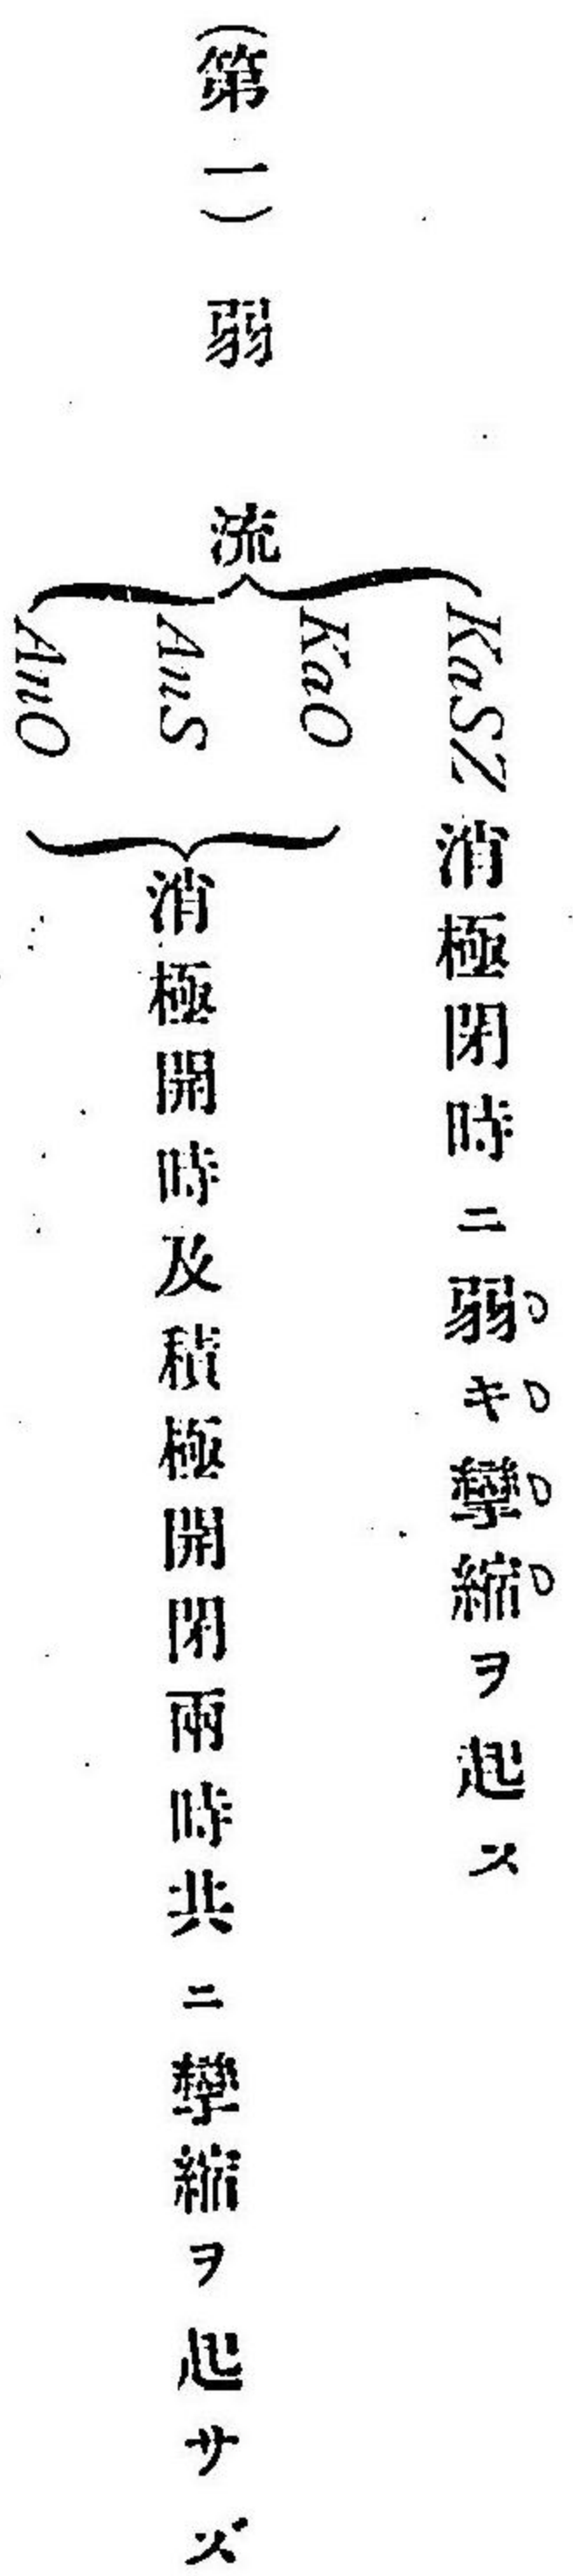 (第一)弱流
KaSZ消極閉時ニ弱キ攣縮ヲ起ス
KaO
AnS
AnO
消極開時及積極開閉兩時共ニ攣縮ヲ起サズ